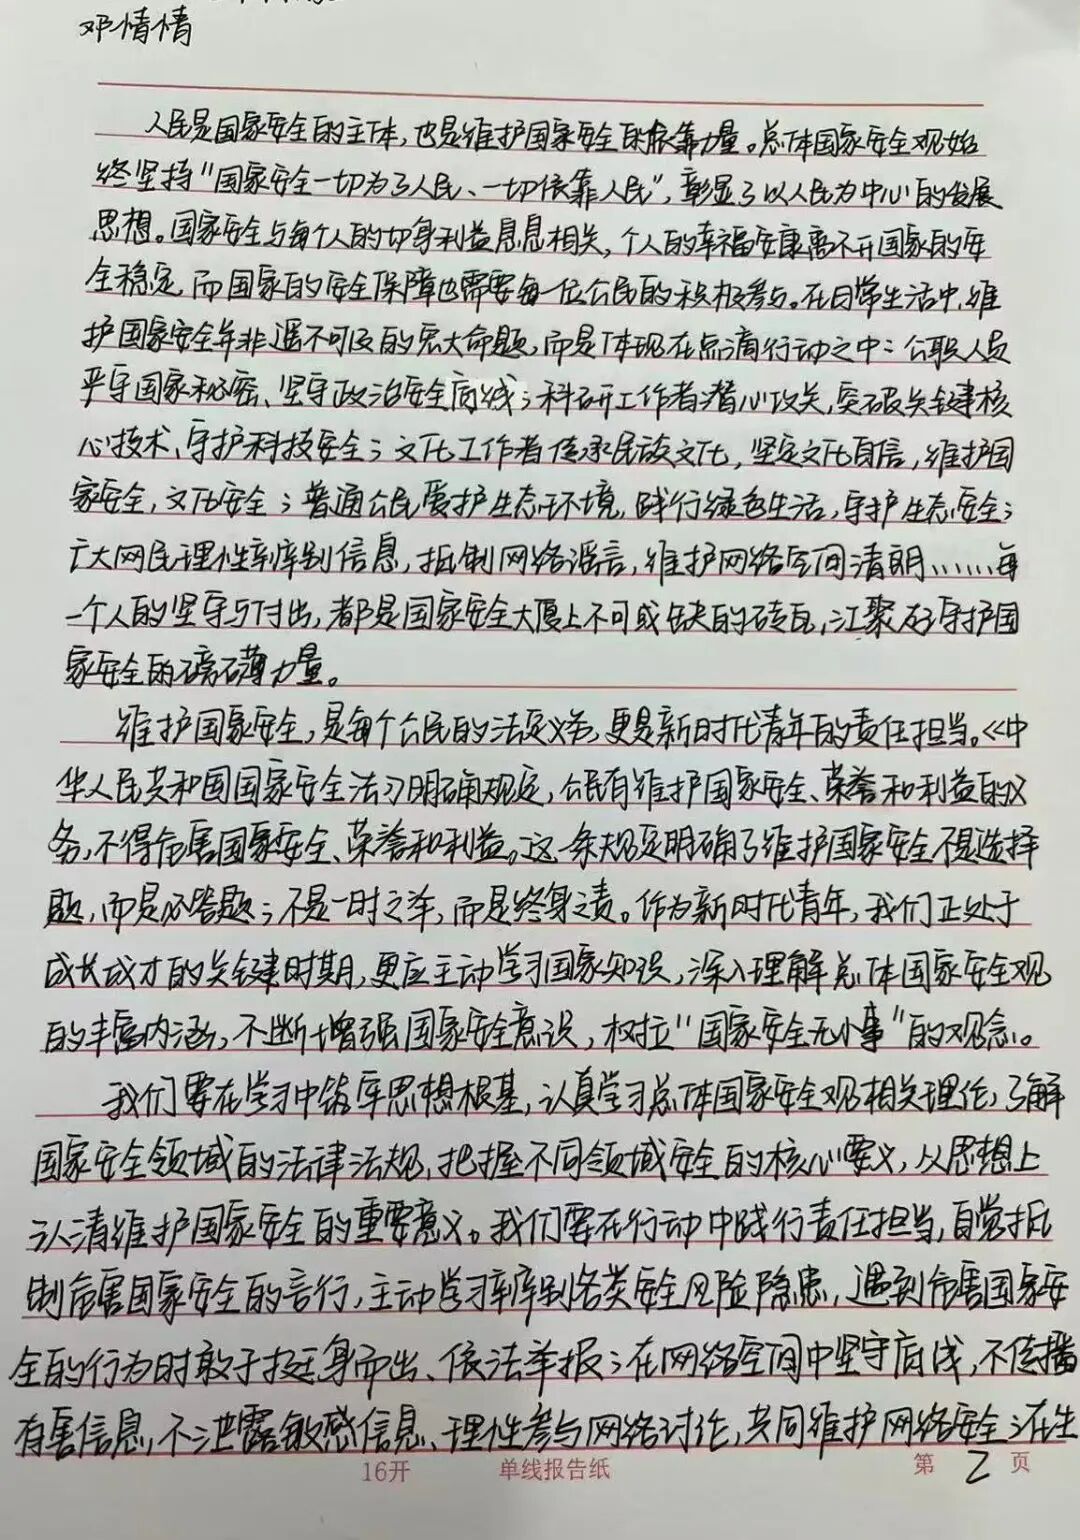 邓情情
人民是国家安全的主体,也是维护国家安全的依靠力量。总体国家安全观始
终坚持"国家安全一切为了人民、一切依靠人民",彰显了以人民为中心的发展
思想。国家安全与每个人的切身利益息息相关,个人的幸福安康离不开国家的安
全稳定,而国家的安全保障也需要每一位公民的积极参与。在日常生活中,维
护国家安全并非遥不可及的宏大命题,而是体现在点滴行动之中:公职人员
严守国家秘密、坚守政治安全底线;科研工作者潜心攻关,突破关键核
心技术,守护科技安全;文化工作者传承民族文化,坚定文化自信,维护国
家安全,文化安全;普通公民爱护生态环境,践行绿色生活,守护生态安全;
广大网民理性辨别信息,抵制网络谣言,维护网络空间清朗......每
一个人的坚守与付出,都是国家安全大厦上不可或缺的砖瓦,汇聚起守护国
家安全的磅礴力量。
维护国家安全,是每个公民的法定义务,更是新时代青年的责任担当。《中
华人民共和国国家安全法》明确规定,公民有维护国家安全、荣誉和利益的义
务,不得危害国家安全、荣誉和利益。这一条规定明确了维护国家安全不是选择
题,而是必答题;不是一时之举,而是终身之责。作为新时代青年,我们正处于
成长成才的关键时期,更应主动学习国家知识,深入理解总体国家安全观
的丰富内涵,不断增强国家安全意识,树立"国家安全无小事"的观念。
我们要在学习中筑牢思想根基,认真学习总体国家安全观相关理论,了解
国家安全领域的法律法规,把握不同领域安全的核心要义,从思想上
认清维护国家安全的重要意义。我们要在行动中践行责任担当,自觉抵
制危害国家安全的言行,主动学习辨别各类安全风险隐患,遇到危害国家安
全的行为时敢于挺身而出、依法举报;在网络空间中坚守底线,不传播
有害信息,不泄露敏感信息、理性参与网络讨论,共同维护网络安全;在生
16开 单线报告纸 第 2 页